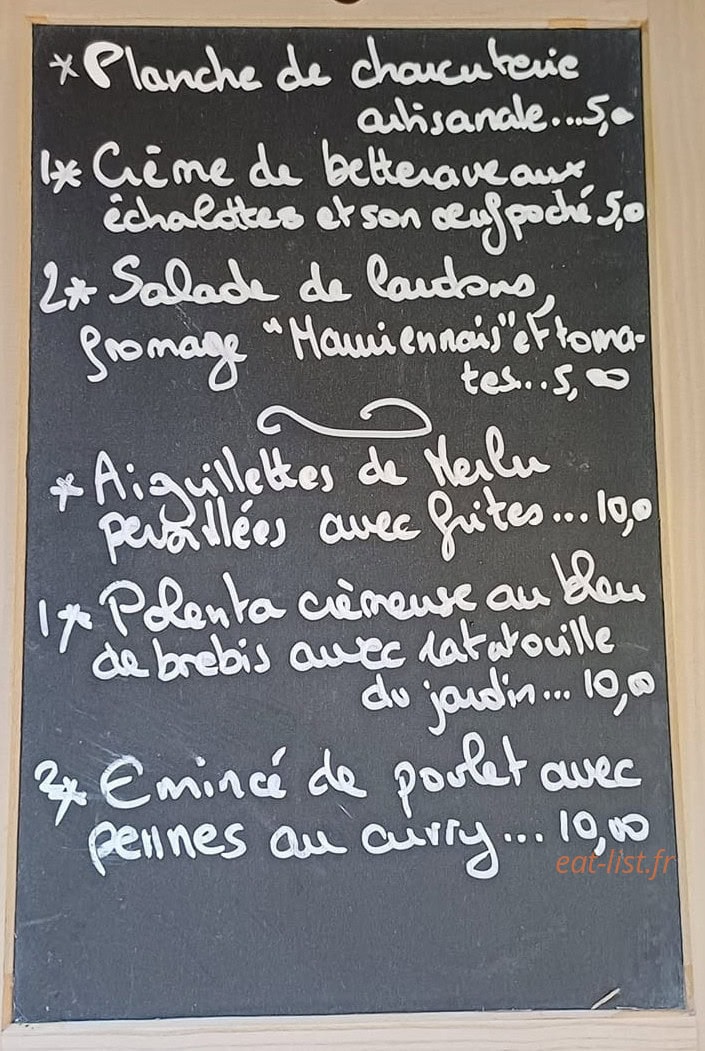 * Planche de charcuterie
artisanale...5,0
1* Crème de betterave aux
échalottes et son œuf poché 5,0
2* Salade de lardons,
fromage "Hauviennois" et toma-
tes...5,00
* Aiguillettes de Merlu
persillées avec frites...10,0
1* Polenta crèmeuse au bleu
de brebis avec ratatouille
du jardin...10,00
2* Emincé de poulet avec
pennes au curry...10,00
eat-list.fr